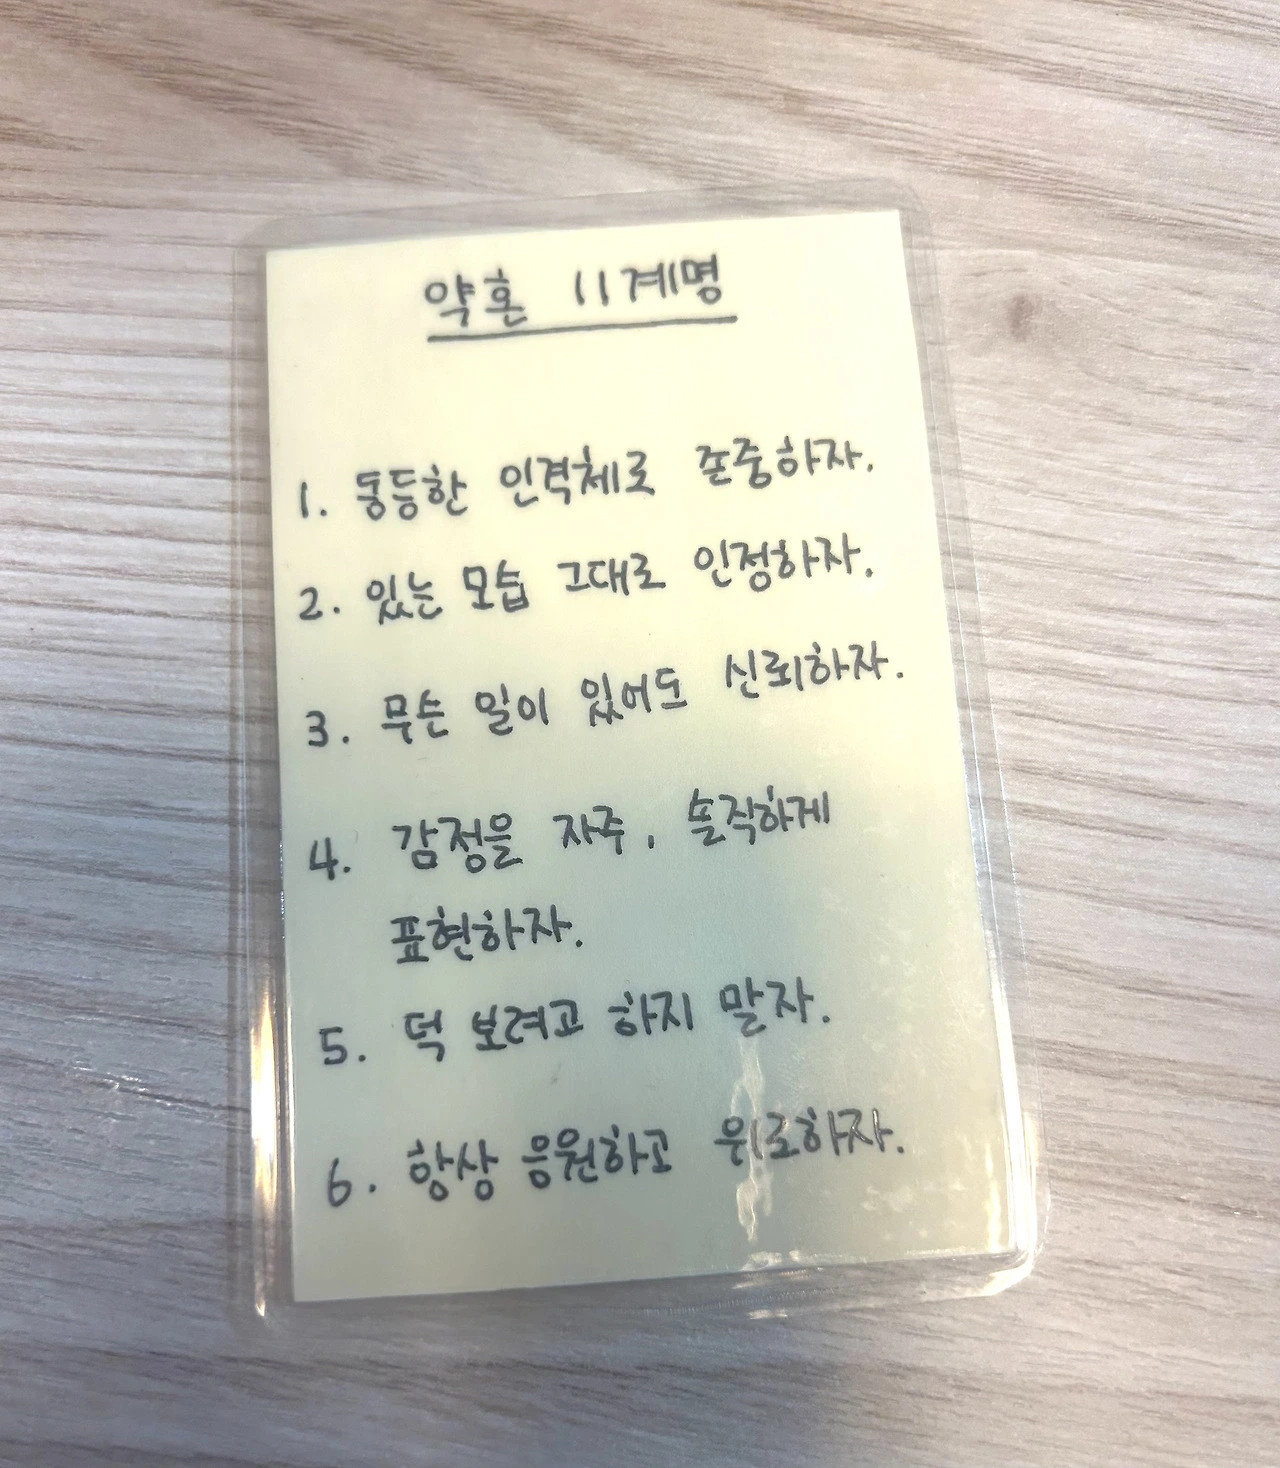 약혼 11계명
1. 동등한 인격체로 존중하자.
2. 있는 모습 그대로 인정하자.
3. 무슨 일이 있어도 신뢰하자.
4. 감정을 자주, 솔직하게
표현하자.
5. 덕 보려고 하지 말자.
6. 항상 응원하고 위로하자.